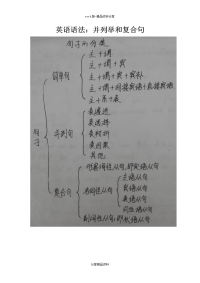 英语语法：并列举和复合句
句子的分类
主+谓
主+谓+宾
简单句
主+谓+宾+宾补
主+谓+间接宾语+直接宾语
主+系+表
表递进
表选择
并列句
表转折
表因果
其他
句子
形容词性从句，即定语从句
主语从句
宾语从句
复合句
名词性从句
表语从句
同位语从句
副词性从句，即状语从句